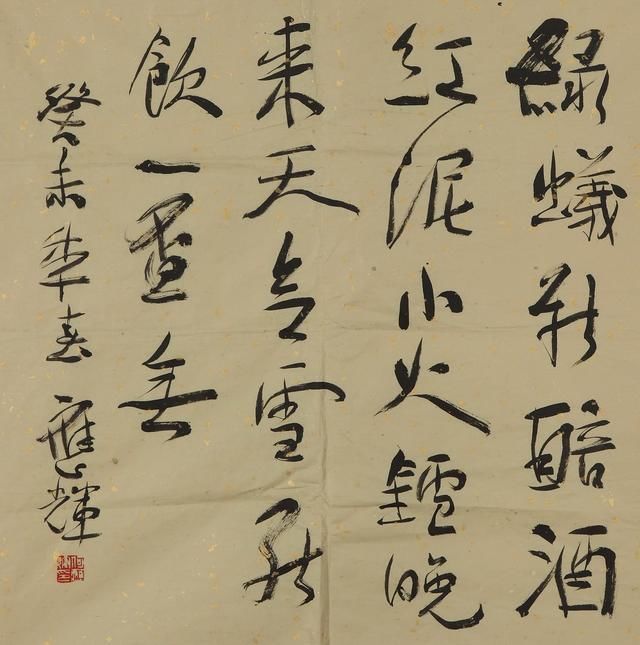 綠蟻新醅酒
紅泥小火鑪晚
来天欲雪能
飲一盃無
癸未年春 應輝